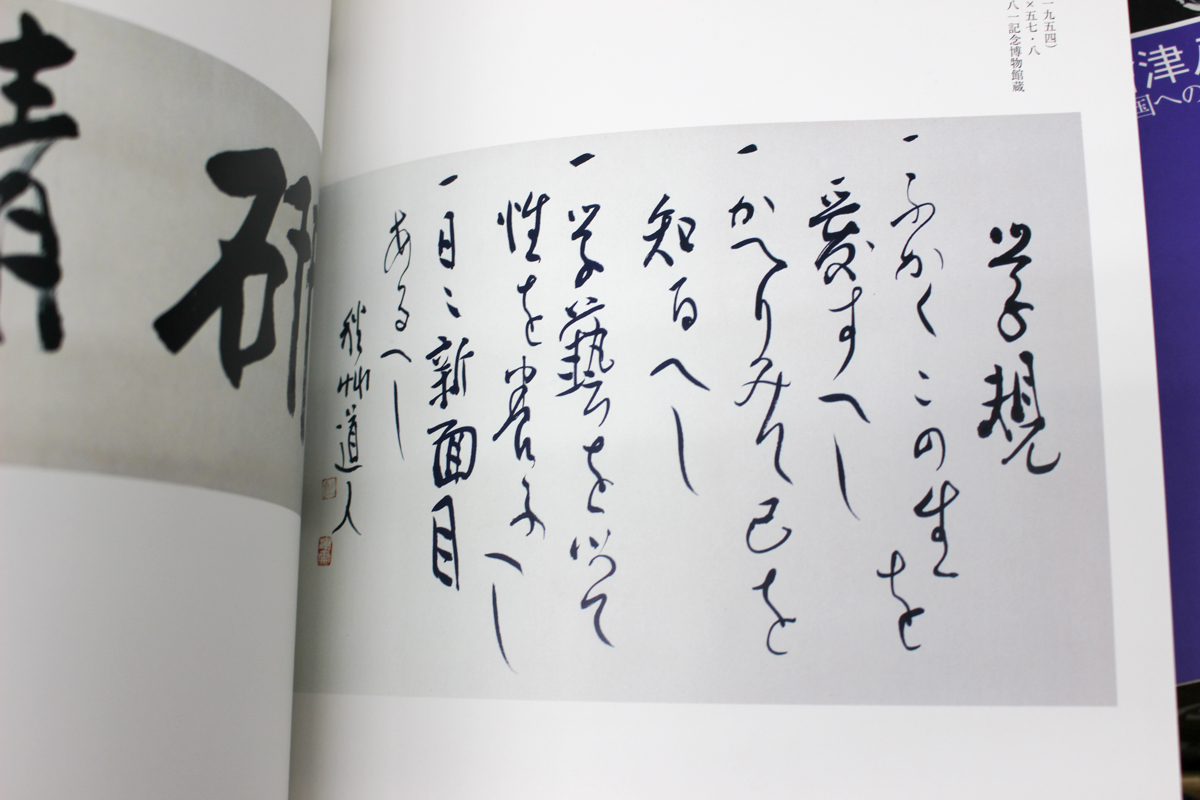 一九五四)
×五七・八
八一記念博物館蔵
学規
一ふかくこの生を
愛すへし
一かへりみて己を
知るへし
一学藝を以て
性を養ふへし
一日々新面目
あるへし
秋艸道人
津
国への